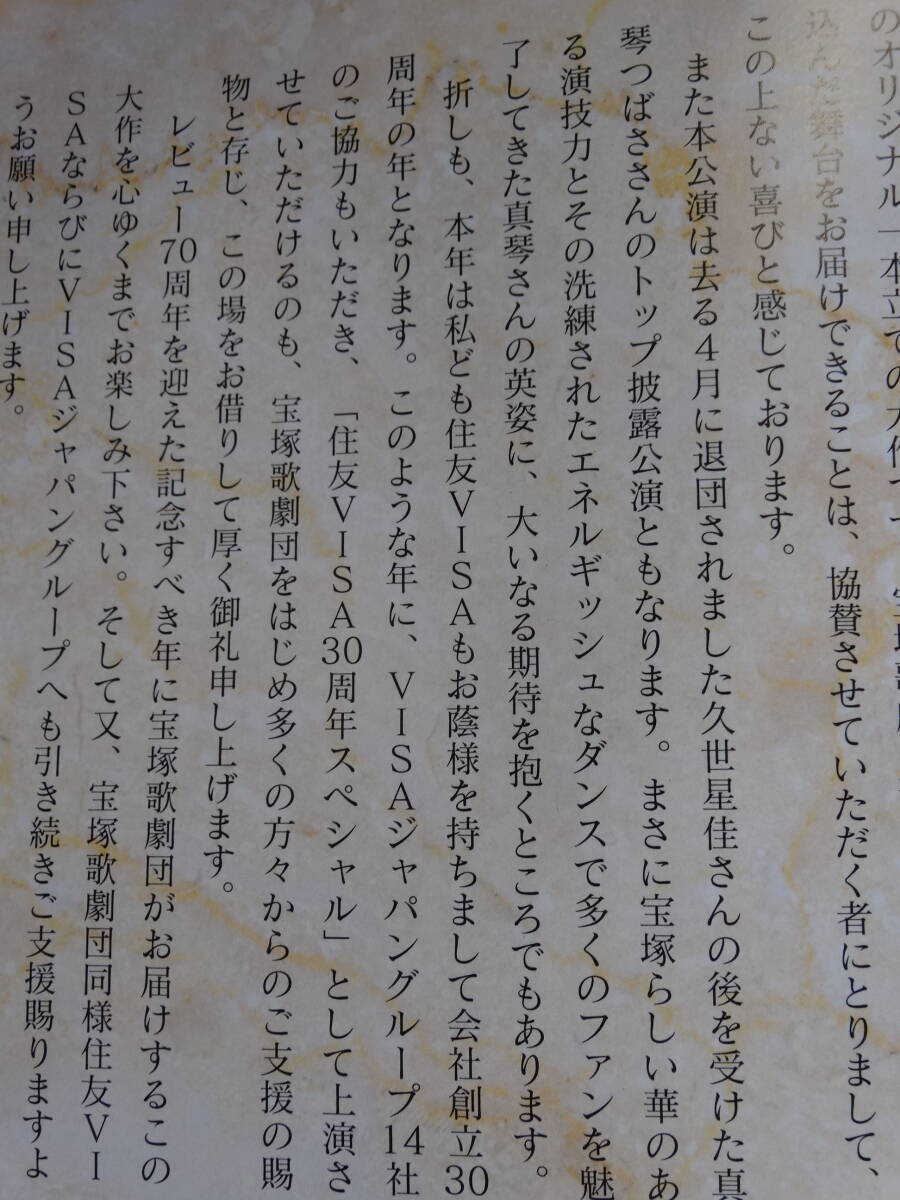 のオリジナル一本立ての大作で
込んだ舞台をお届けできることは、協賛させていただく者にとりまして、
この上ない喜びと感じております。
また本公演は去る4月に退団されました久世星佳さんの後を受けた真
琴つばささんのトップ披露公演ともなります。まさに宝塚らしい華のあ
る演技力とその洗練されたエネルギッシュなダンスで多くのファンを魅
了してきた真琴さんの英姿に、大いなる期待を抱くところでもあります。
折しも、本年は私ども住友VISAもお蔭様を持ちまして会社創立30
周年の年となります。このような年に、VISAジャパングループ14社
のご協力もいただき、「住友VISA30周年スペシャル」として上演さ
せていただけるのも、宝塚歌劇団をはじめ多くの方々からのご支援の賜
物と存じ、この場をお借りして厚く御礼申し上げます。
レビュー70周年を迎えた記念すべき年に宝塚歌劇団がお届けするこの
大作を心ゆくまでお楽しみ下さい。そして又、宝塚歌劇団同様住友VI
SAならびにVISAジャパングループへも引き続きご支援賜りますよ
うお願い申し上げます。